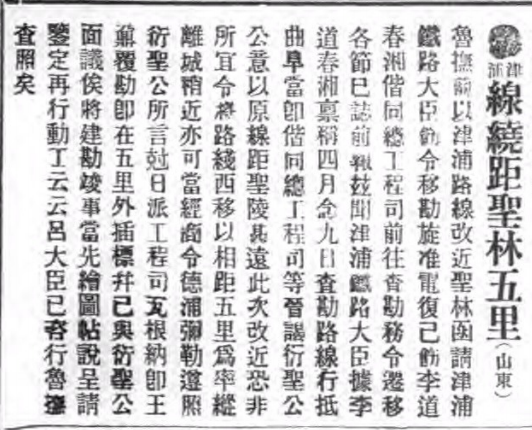 津浦線繞距聖林五里(山東)
魯撫前以津浦路線改近聖林函請津浦
鐵路大臣飭令移勘旋准電復已飭李道
春湘偕同總工程司前往查勘務令遷移
各節已誌前報茲聞津浦鐵路大臣據李
道春湘稟稱四月念九日查勘路線行抵
曲阜當卽偕同總工程司等晉謁衍聖公
公意以原線距聖陵甚遠此次改近恐非
所宜令將路綫西移以相距五里爲率縱
離城稍近亦可當經商令德浦彌勒遵照
衍聖公所言尅日派工程司瓦根納卽王
鼐覆勘卽在五里外插標幷已與衍聖公
面議俟將建勘竣事當先繪圖帖說呈請
鑒定再行動工云云呂大臣已咨行魯撫
查照矣